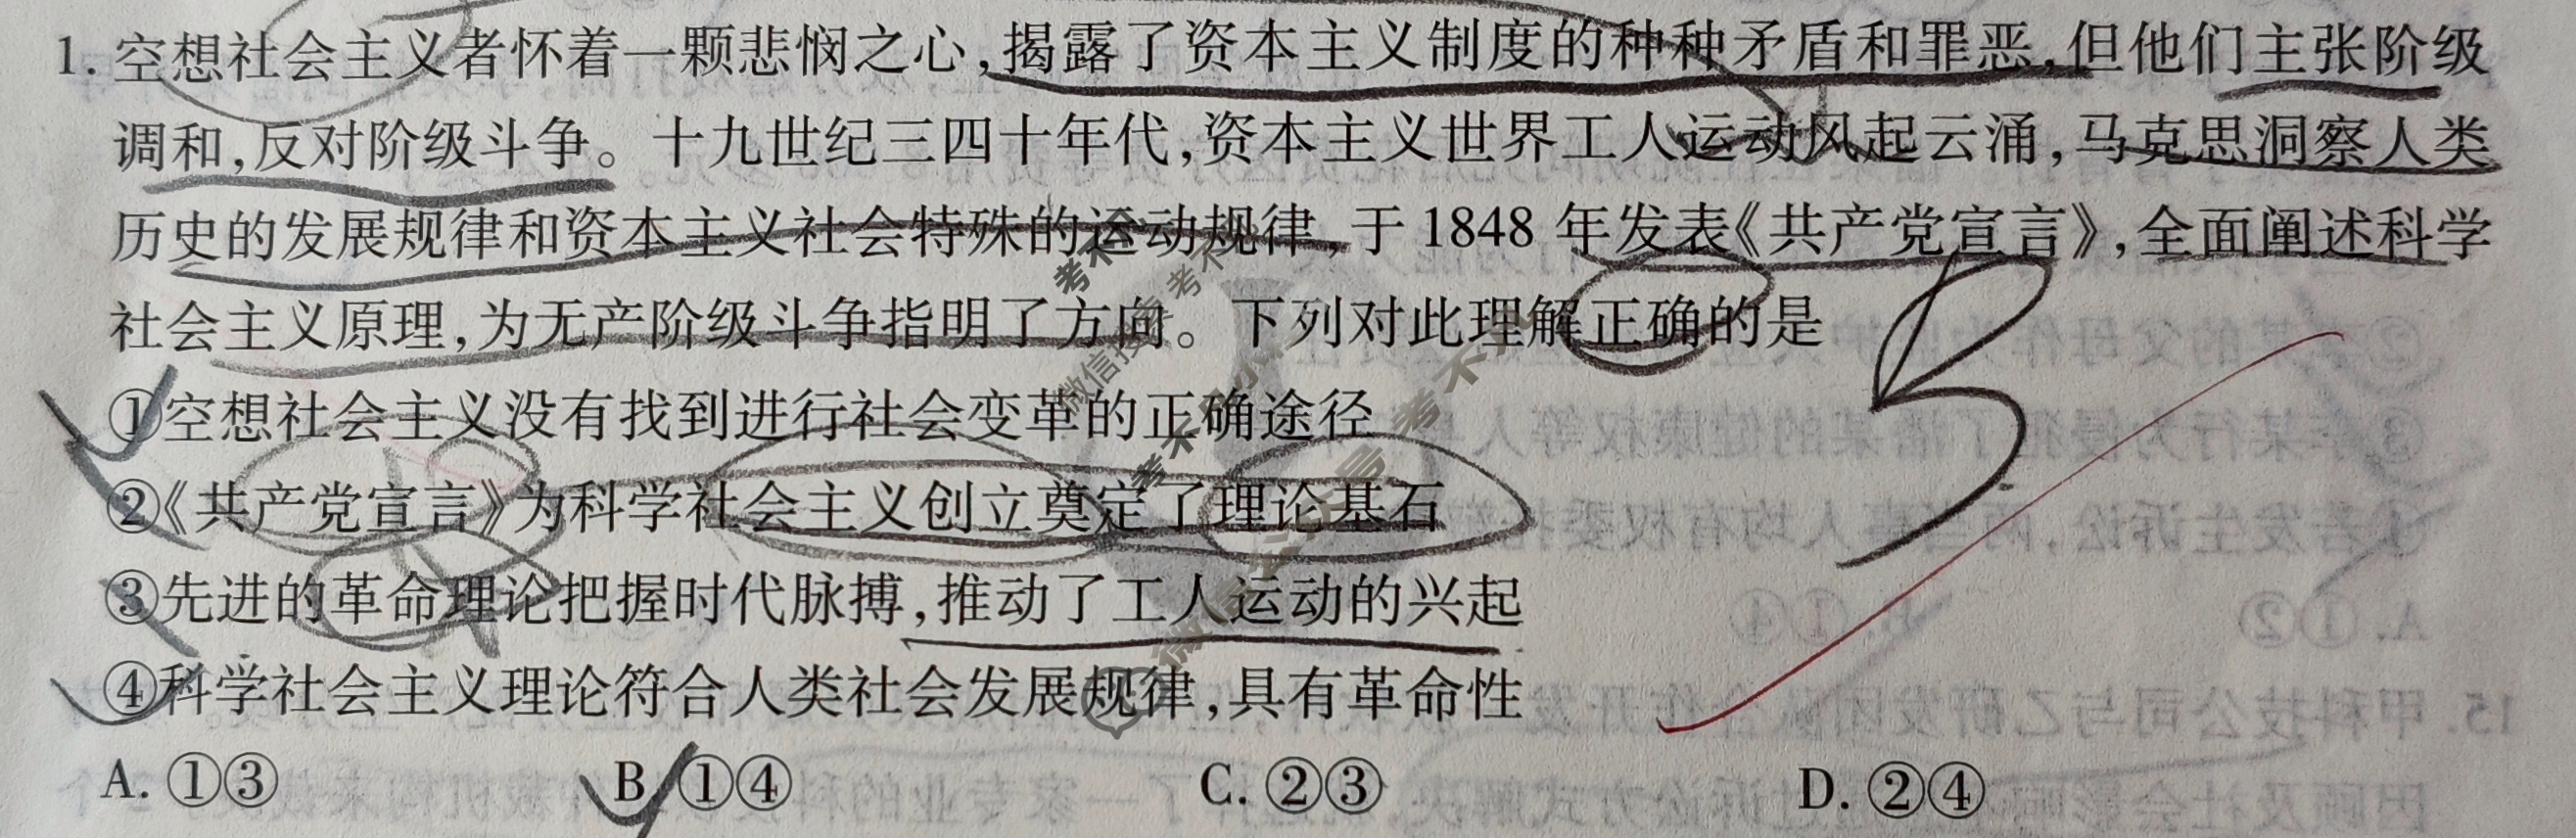 1. 空想社会主义者怀着一颗悲悯之心,揭露了资本主义制度的种种矛盾和罪恶,但他们主张阶级
调和,反对阶级斗争。十九世纪三四十年代,资本主义世界工人运动风起云涌,马克思洞察人类
历史的发展规律和资本主义社会特殊的运动规律,于1848年发表《共产党宣言》,全面阐述科学
社会主义原理,为无产阶级斗争指明了方向。下列对此理解正确的是
①空想社会主义没有找到进行社会变革的正确途径
②《共产党宣言》为科学社会主义创立奠定了理论基石
③先进的革命理论把握时代脉搏,推动了工人运动的兴起
④科学社会主义理论符合人类社会发展规律,具有革命性
A. ①③ B. ①④ C. ②③ D. ②④
B